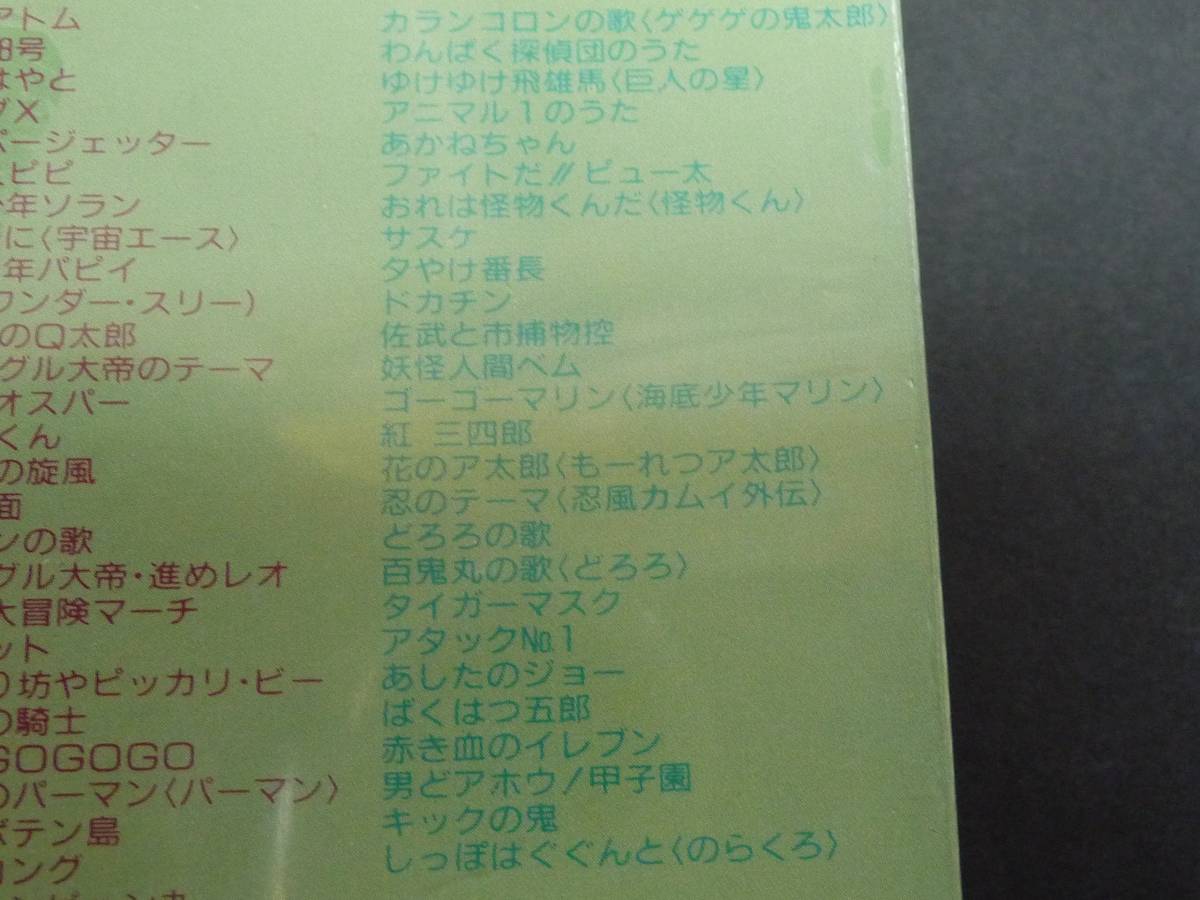 アトム
8号
はやと
グX
パージェッター
ピピ
少年ソラン
に〈宇宙エース〉
年パピイ
ワンダー・スリー）
のQ太郎
グル大帝のテーマ
オスパー
くん
の旋風
面
ンの歌
グル大帝・進めレオ
大冒険マーチ
ット
り坊やピッカリ・ビー
の騎士
GOGOGO
のパーマン〈パーマン〉
ボテン島
コング
カランコロンの歌〈ゲゲゲの鬼太郎〉
わんぱく探偵団のうた
ゆけゆけ飛雄馬〈巨人の星〉
アニマル1のうた
あかねちゃん
ファイトだ!!ピュー太
おれは怪物くんだ〈怪物くん〉
サスケ
夕やけ番長
ドカチン
佐武と市捕物控
妖怪人間ベム
ゴーゴーマリン〈海底少年マリン〉
紅 三四郎
花のア太郎〈もーれつア太郎〉
忍のテーマ〈忍風カムイ外伝〉
どろろの歌
百鬼丸の歌〈どろろ〉
タイガーマスク
アタック№1
あしたのジョー
ばくはつ五郎
赤き血のイレブン
男どアホウ!甲子園
キックの鬼
しっぽはぐぐんと〈のらくろ〉